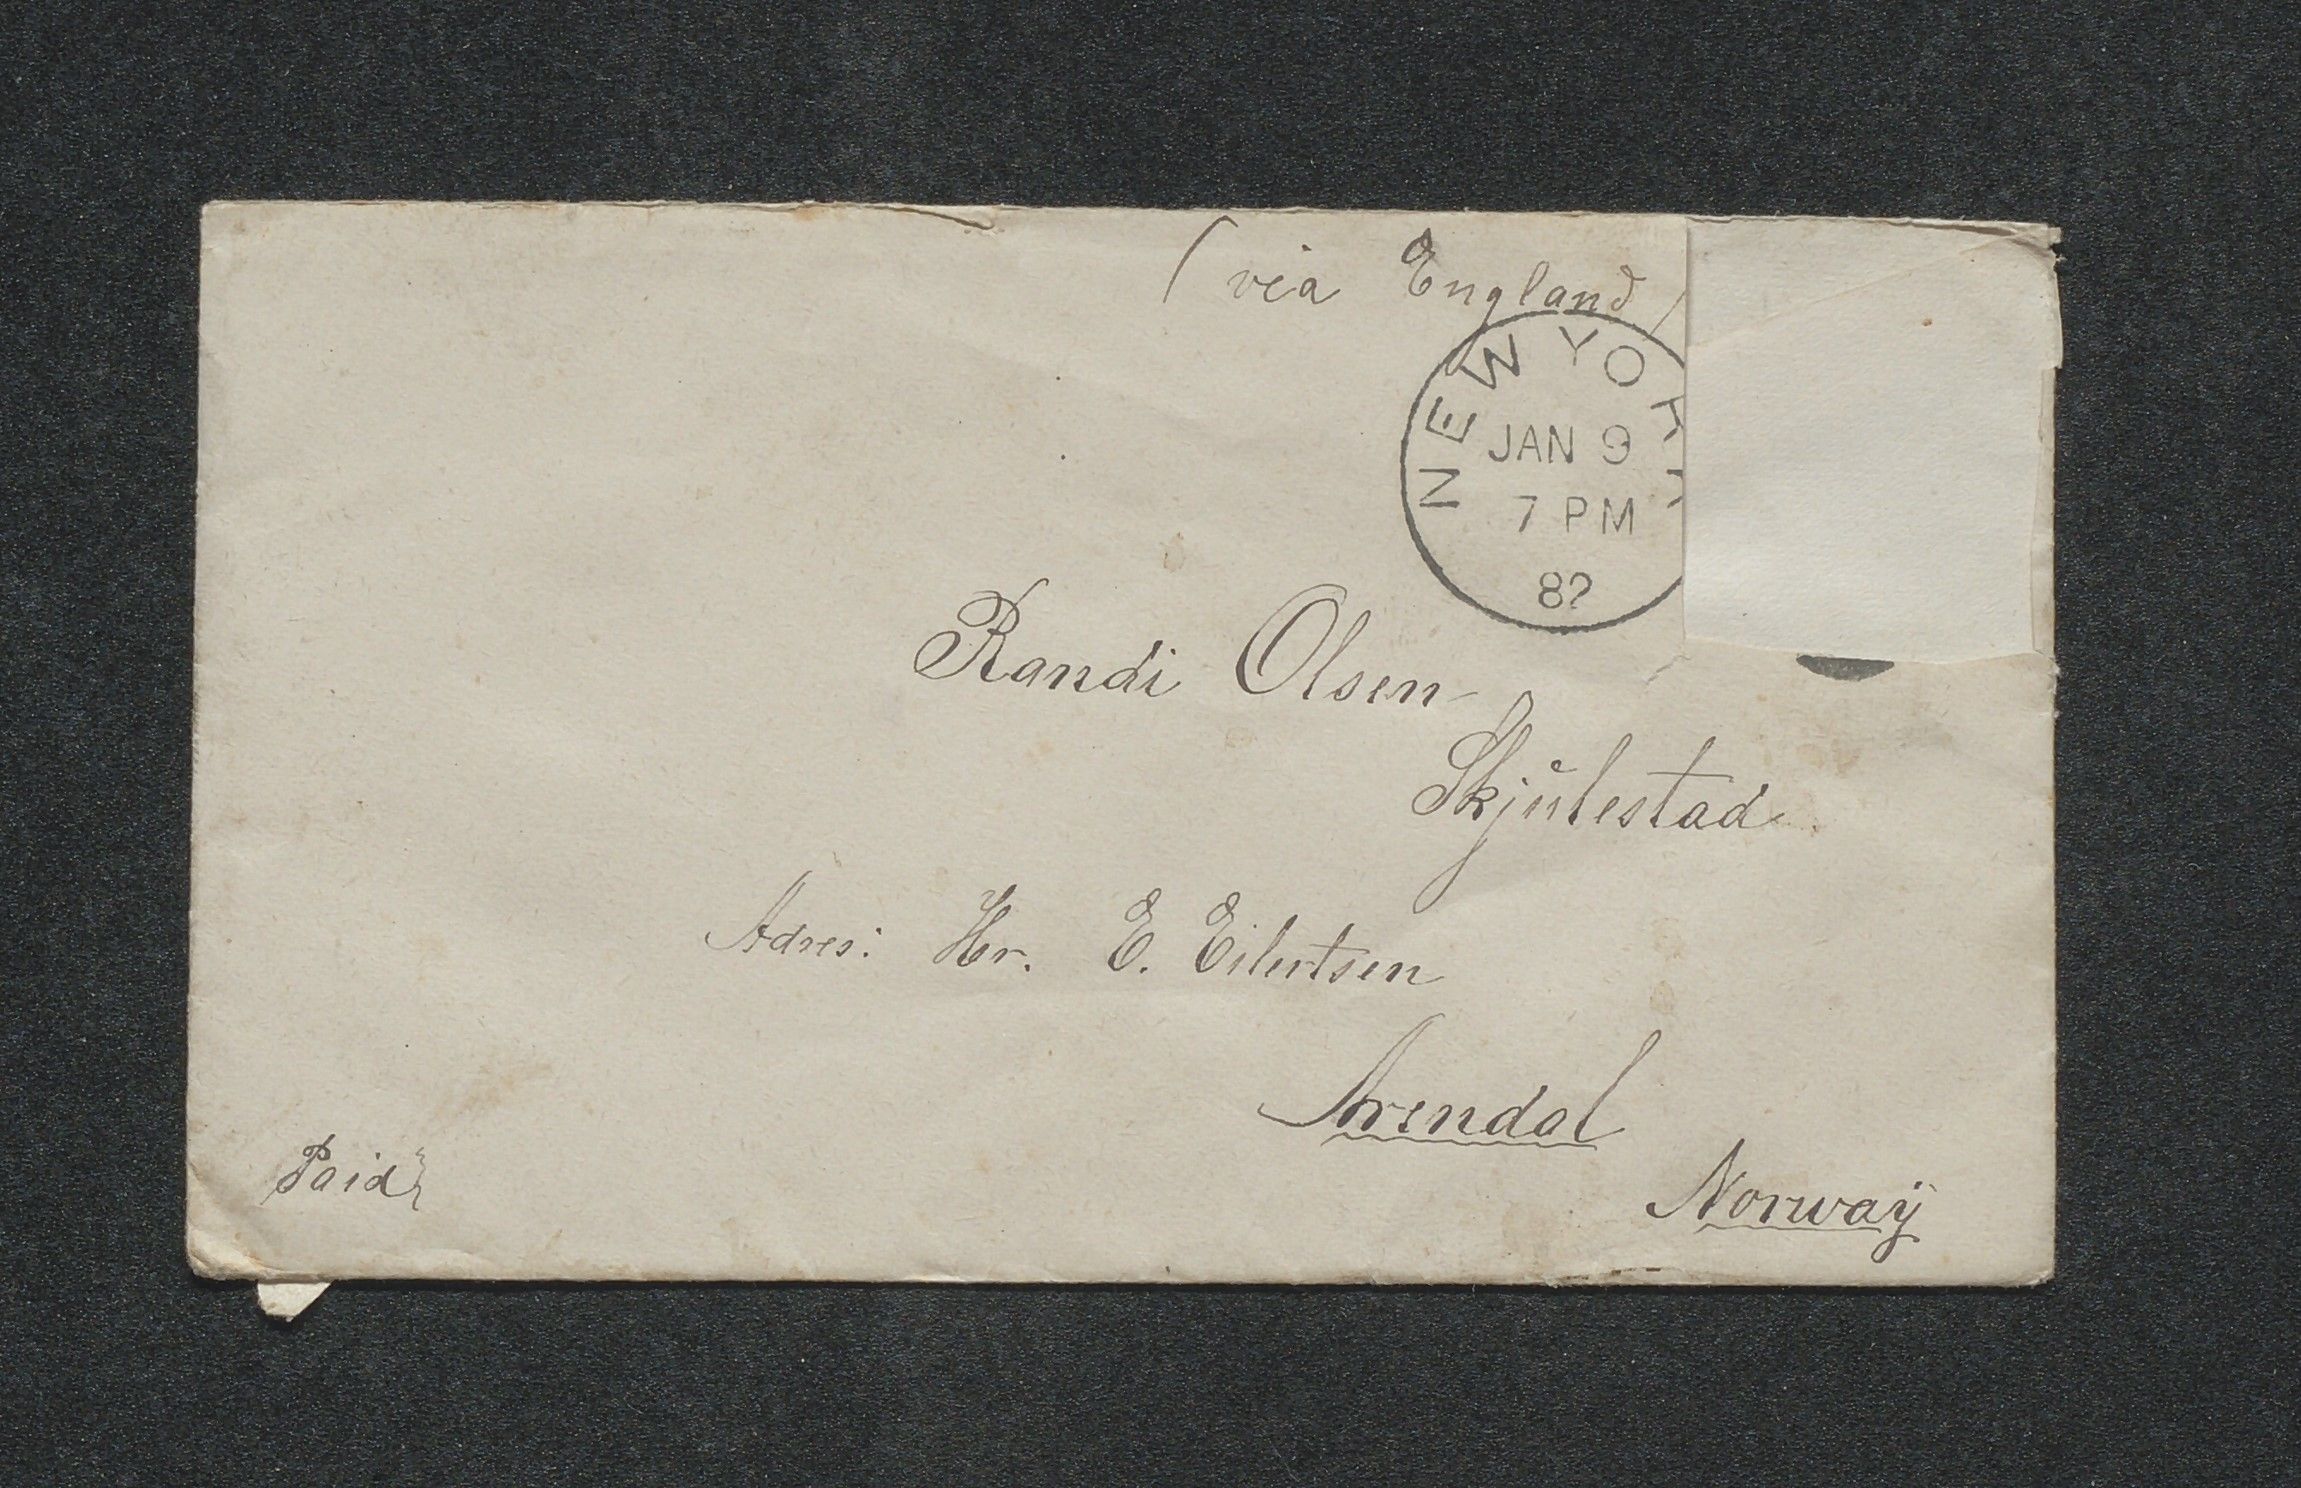 ( via England )
NEW YORK
JAN 9
7 PM
82
Randi Olsen
Skjulestad
Adres: Hr. E. Eilertsen
Arendal
Paid
Norway